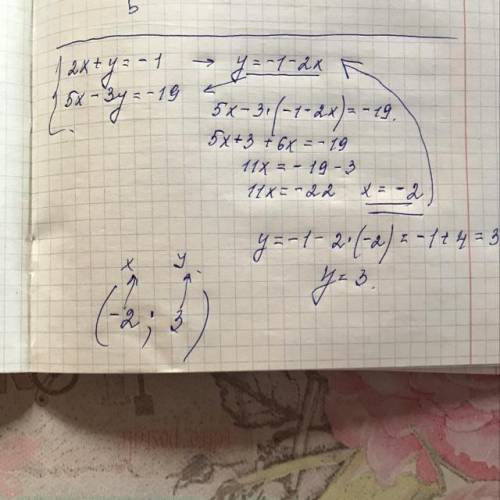 5
2x+y=-1 → y=-1-2x
5x-3y=-19
5x-3·(-1-2x)=-19.
5x+3+6x=-19
11x=-19-3
11x=-22 x=-2
y=-1-2·(-2)=-1+4=3
y=3.
x y
(-2; 3)